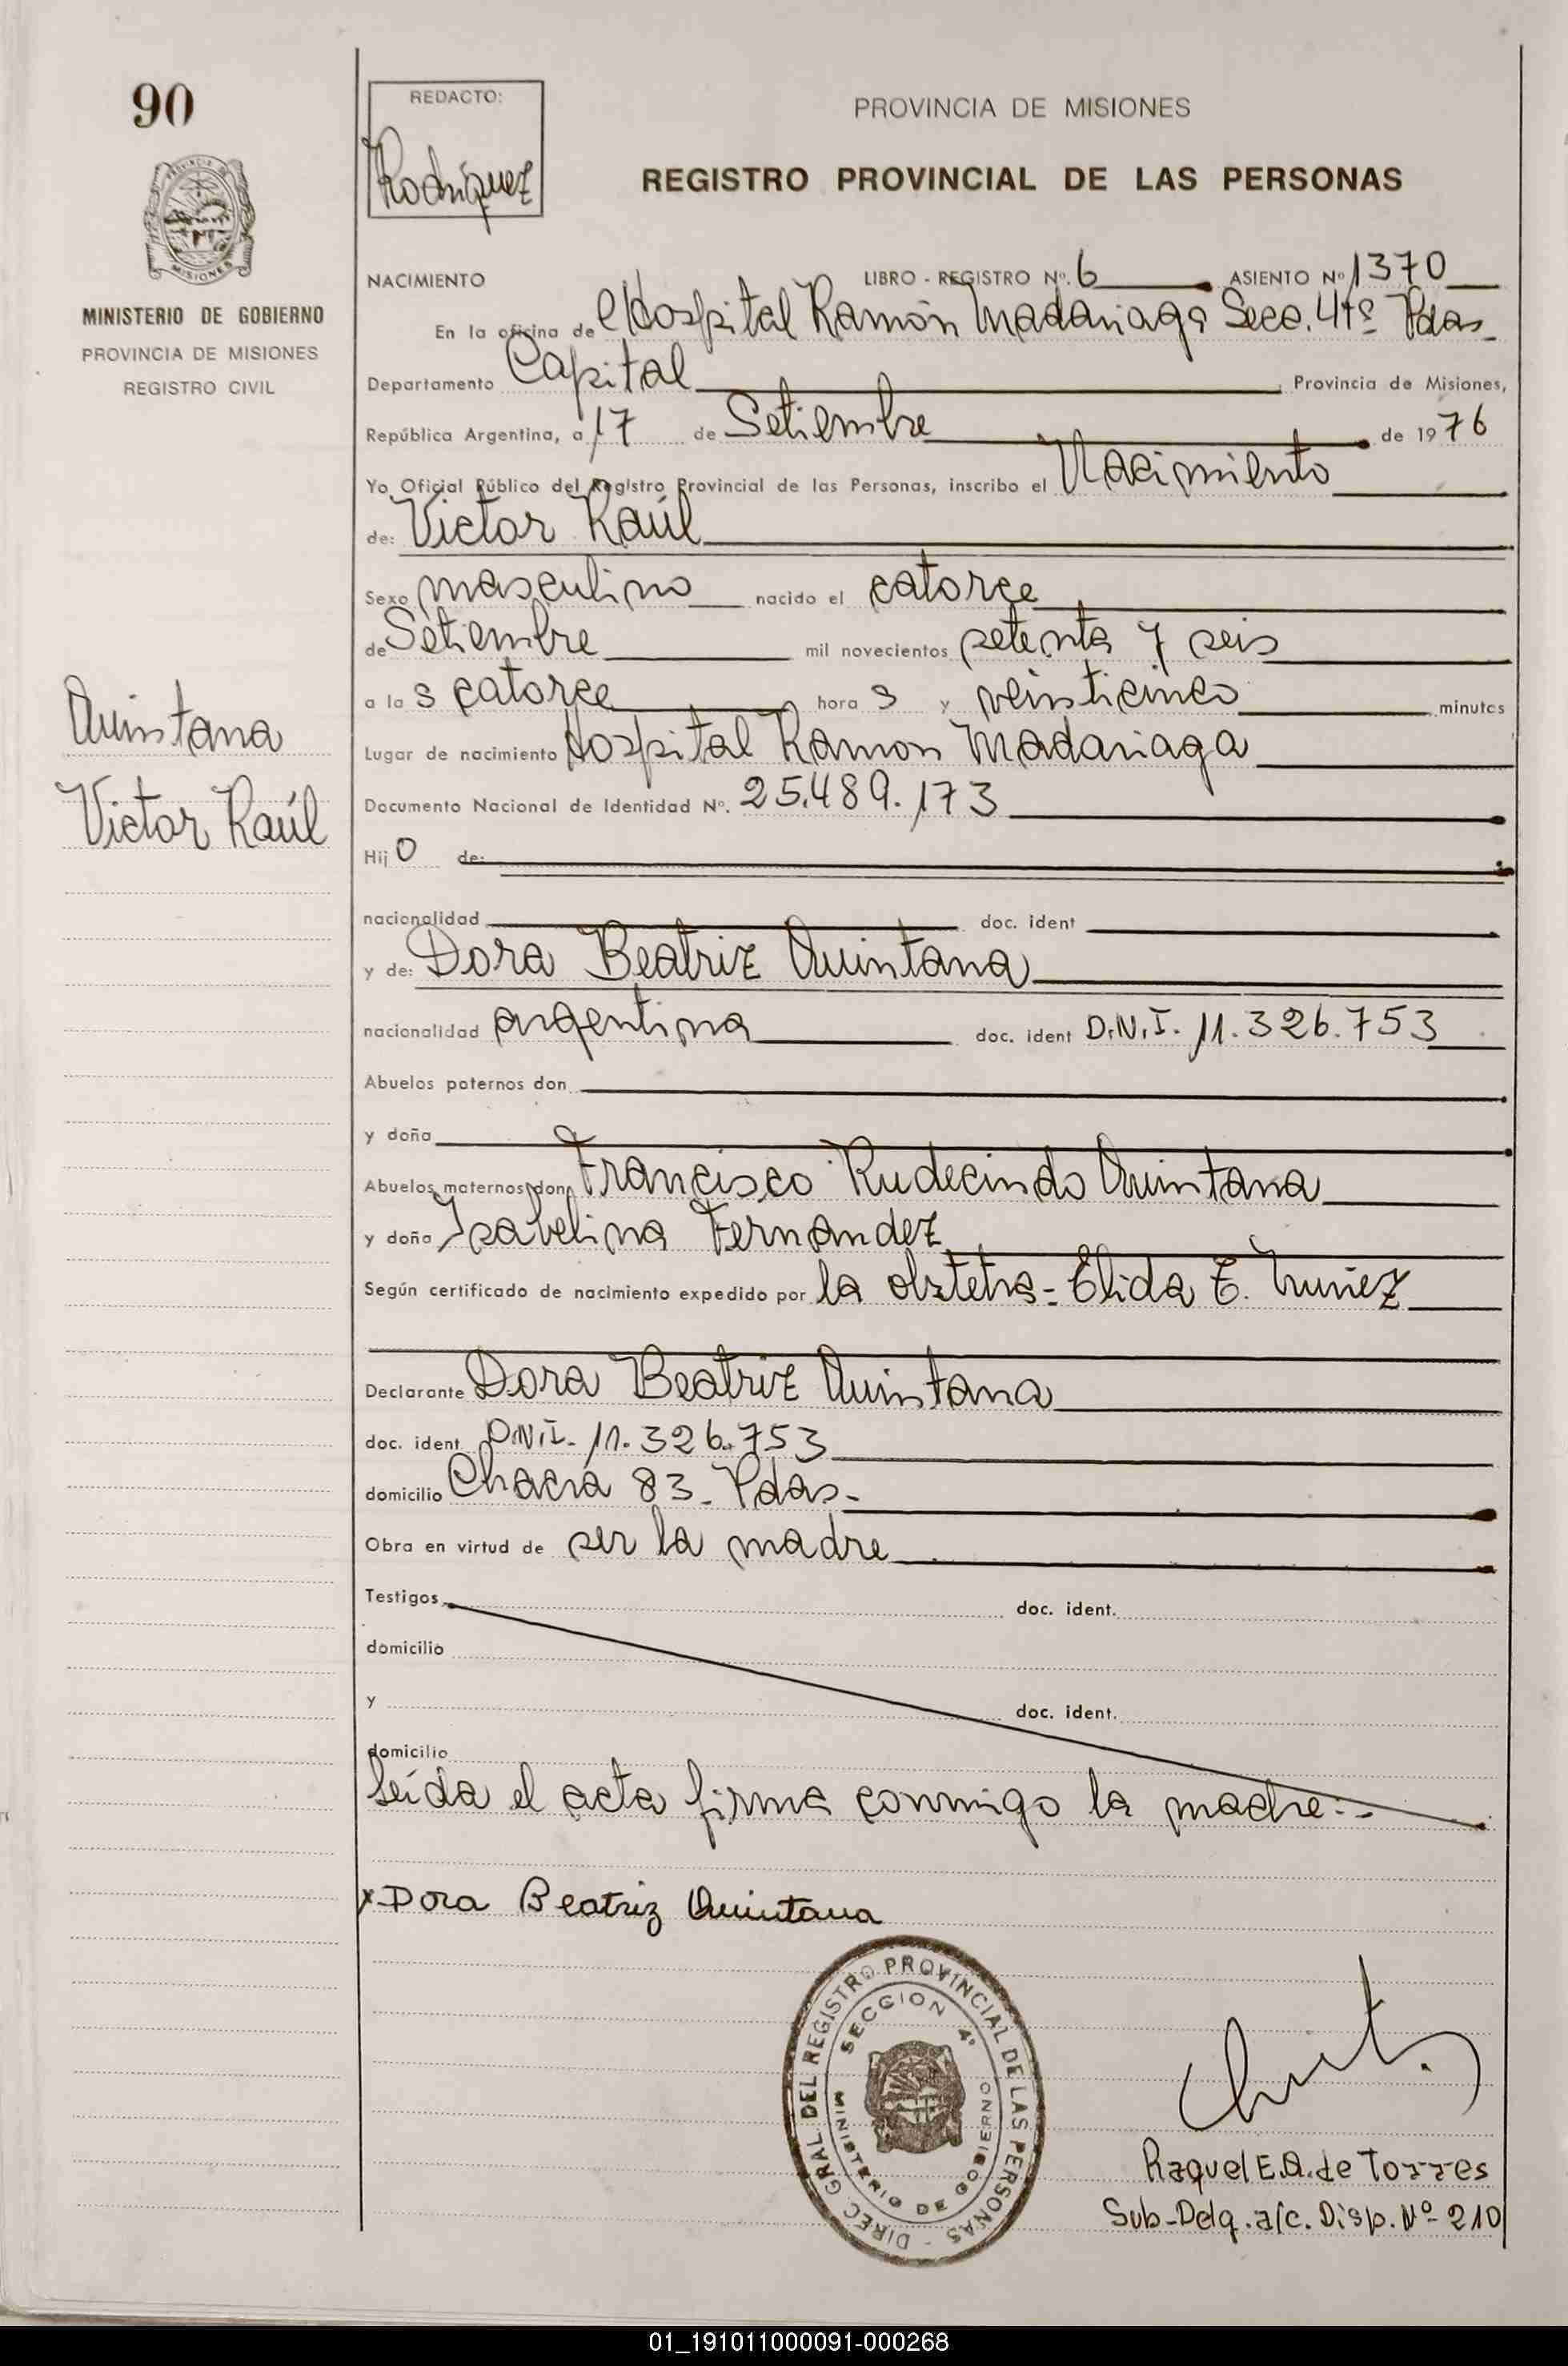 90
MINISTERIO DE GOBIERNO
PROVINCIA DE MISIONES
REGISTRO CIVIL
Quintana
Victor Raúl
REDACTO:
Rodríguez
PROVINCIA DE MISIONES
REGISTRO PROVINCIAL DE LAS PERSONAS
NACIMIENTO LIBRO - REGISTRO Nº. 6 ASIENTO Nº 1370
En la oficina de Hospital Ramón Madariaga Secc. 4tº Pdas
Departamento Capital Provincia de Misiones,
República Argentina, a 17 de Setiembre de 1976
Yo Oficial Público del Registro Provincial de las Personas, inscribo el Nacimiento
de: Victor Raúl
Sexo masculino nacido el catorce
de Setiembre mil novecientos setenta y seis
a las catorce horas y veinticinco minutos
Lugar de nacimiento Hospital Ramon Madariaga
Documento Nacional de Identidad Nº. 25.489.173
Hijo de:
nacionalidad doc. ident
y de: Dora Beatriz Quintana
nacionalidad argentina doc. ident D.N.I. 11.326.753
Abuelos paternos don
y doña
Abuelos maternos don Francisco Rudecindo Quintana
y doña Isabelina Fernandez
Según certificado de nacimiento expedido por la obstetra - Elida E. Nuñez
Declarante Dora Beatriz Quintana
doc. ident D.N.I. 11.326.753
domicilio Chacra 83 - Pdas -
Obra en virtud de ser la madre
Testigos doc. ident.
domicilio
y doc. ident.
domicilio
Leída el acta firma conmigo la madre:-
x Dora Beatriz Quintana
DIREC. GRAL. DEL REGISTRO PROVINCIAL DE LAS PERSONAS -
SECCION 4º
MINISTERIO DE GOBIERNO
Raquel E.A. de Torres
Sub-Delg. a/c. Disp. Nº 210
01_191011000091-000268